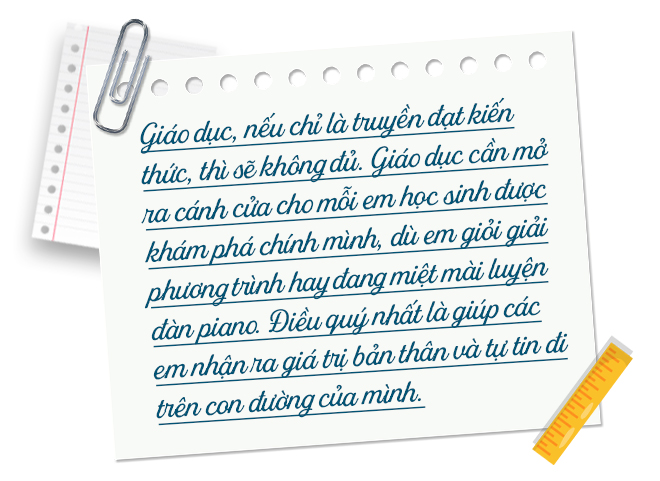 Giáo dục, nếu chỉ là truyền đạt kiến
thức, thì sẽ không đủ. Giáo dục cần mở
ra cánh cửa cho mỗi em học sinh được
khám phá chính mình, dù em giỏi giải
phương trình hay đang miệt mài luyện
đàn piano. Điều quý nhất là giúp các
em nhận ra giá trị bản thân và tự tin đi
trên con đường của mình.